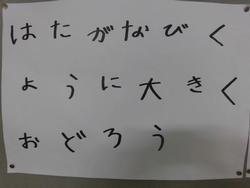 はたがなびく
ように大きく
おどろう